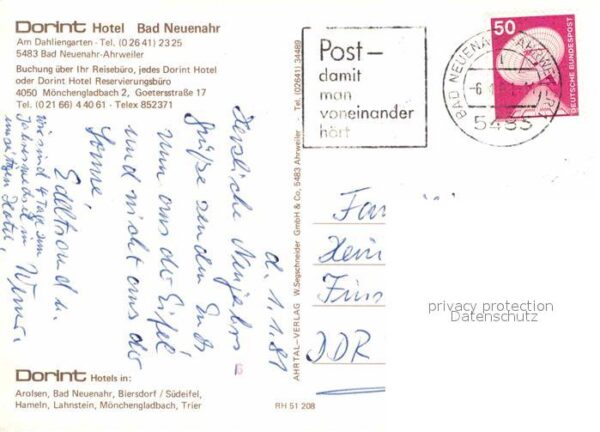 Dorint Hotel Bad Neuenahr
Am Dahliengarten - Tel. (0 26 41) 23 25
5483 Bad Neuenahr-Ahrweiler
Buchung über Ihr Reisebüro, jedes Dorint Hotel
oder Dorint Hotel Reservierungsbüro
4050 Mönchengladbach 2, Goetersstraße 17
Tel. (0 21 66) 4 40 61 - Telex 852371
d. 1.1.81
Herzliche Neujahrs
grüße senden Euch
nun aus der Eifel
und nicht aus der
Sonne,
Edeltraud u.
Werner.
Wir sind 4 Tage zum
Jahreswechsel in
unseren Hotel.
Dorint Hotels in:
Arolsen, Bad Neuenahr, Biersdorf / Südeifel,
Hameln, Lahnstein, Mönchengladbach, Trier
RH 51 208
AHRTAL-VERLAG W. Segschneider GmbH & Co, 5483 Ahrweiler - Tel. (02641) 34489
6
Post—
damit
man
voneinander
hört
BAD NEUENAHR-AHRWEILER 1
-6.1.
5483
50
DEUTSCHE BUNDESPOST
Fam
DDR
privacy protection
Datenschutz